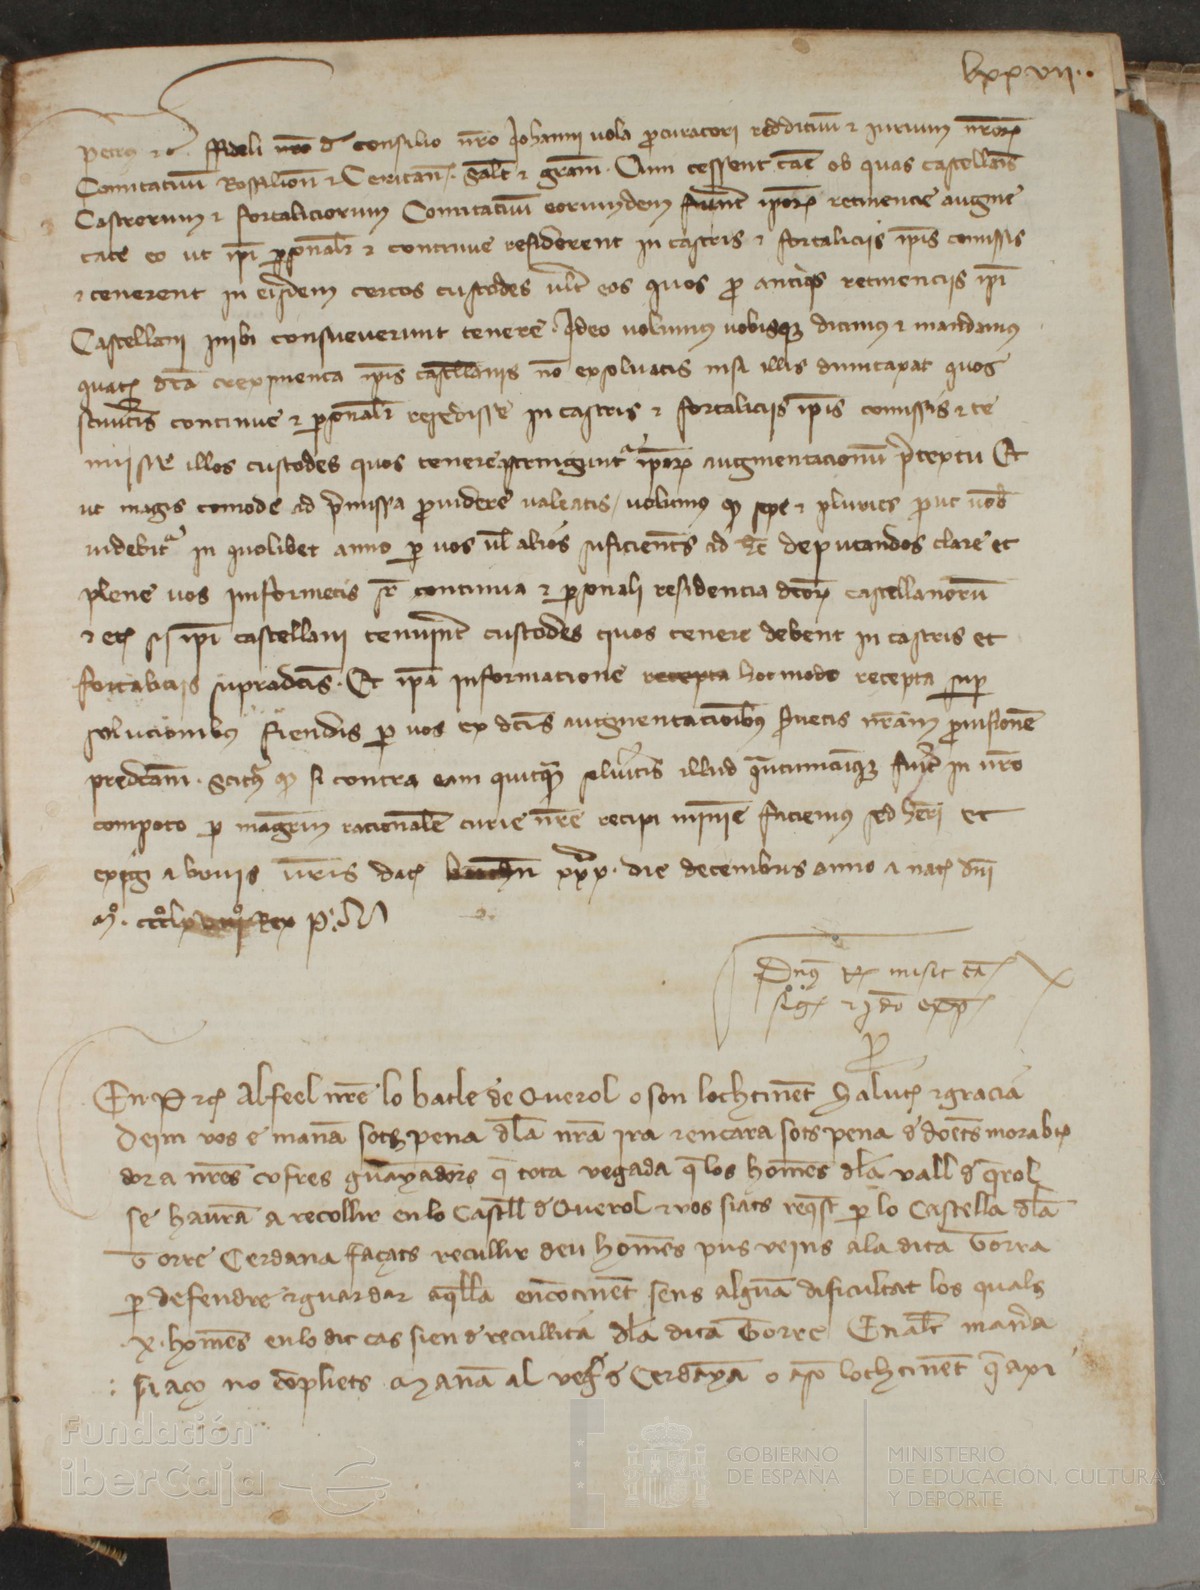 lxxvii.
Petrus etc. ffideli nro de consilio nro Johanni uola procuratori reddituum et iurium nrorum
Comitatuum Rossilion et Ceritan. Salt et gram. Cum cessent cause ob quas castellanis
Castrorum et fortaliciorum Comitatuum eorumdem fuerunt ipsorum retinencie augmen
tate eo ut ipi personalr et continue residerent in castris et fortaliciis ipis comissis
et tenerent in eisdem certos custodes ultr eos quos pro antiqis retinenciis ipi
Castellani inibi consueuerunt tenere. Ideo uolumus uobisque dicimus et mandamus
quate dca creximenta ipis castellanis no exsoluatis nisi illis dumtaxat quos
sciueritis continue et personalr resedisse in castris et fortaliciis ipis comissis et te
nuisse illos custodes quos tenere astringuntur ipsorum augmentacionum pretextu Et
ut magis comode ad premissa prouidere ualeatis uolumus q sepe et pluries prout uob
uidebitur in quolibet anno per uos ul alios suficientes ad hec deputandos clare et
plene uos informetis sr continua et personali residencia dcorum castellanorum
et etiam si ipi castellani tenuerint custodes quos tenere debent in castris et
fortaliciis supradcis. Et ipa informacione recepta hoc modo recepta super
solucionibus fiendis per uos ex dcis augmentacionibus seruetis nram prouisionem
predcam. Scituri q si contra eam quitquam solueritis illud quantumcunque fuerit in uro
compoto per magrum racionalem curie nre recipi minime faciemus sed heri et
exigi a bonis uris Dat xxx. die decembris anno a nat dni
Mo. ccco lx Rex P.
Dns Rex misit cam
sigt et jdo exp
P
En P etc Alfeel nre lo batle de Querol o son lochtinent Salut et gracia
Deim vos e manam sots pena dla nra ira et encara sots pena d doents morabt
dor a nres cofres guanyadors q tota vegada q los homens dla vall d qrol
se hauran a recollir en lo Castell d Querol et vos siats reqst per lo Castella dla
Torre Cerdana façats recullir deu homens pus veins a la dita Torra
per defendre et guardar aqlla encotinent sens alguna dificultat los quals
.X. homens en lo dit cas sien d recullita dla dita Torre En alt manera
si aço no compliets manam al veg d Cerdanya o aso lochtinent q axi
Fundación
iberCaja
GOBIERNO
DE ESPAÑA
MINISTERIO
DE EDUCACIÓN, CULTURA
Y DEPORTE